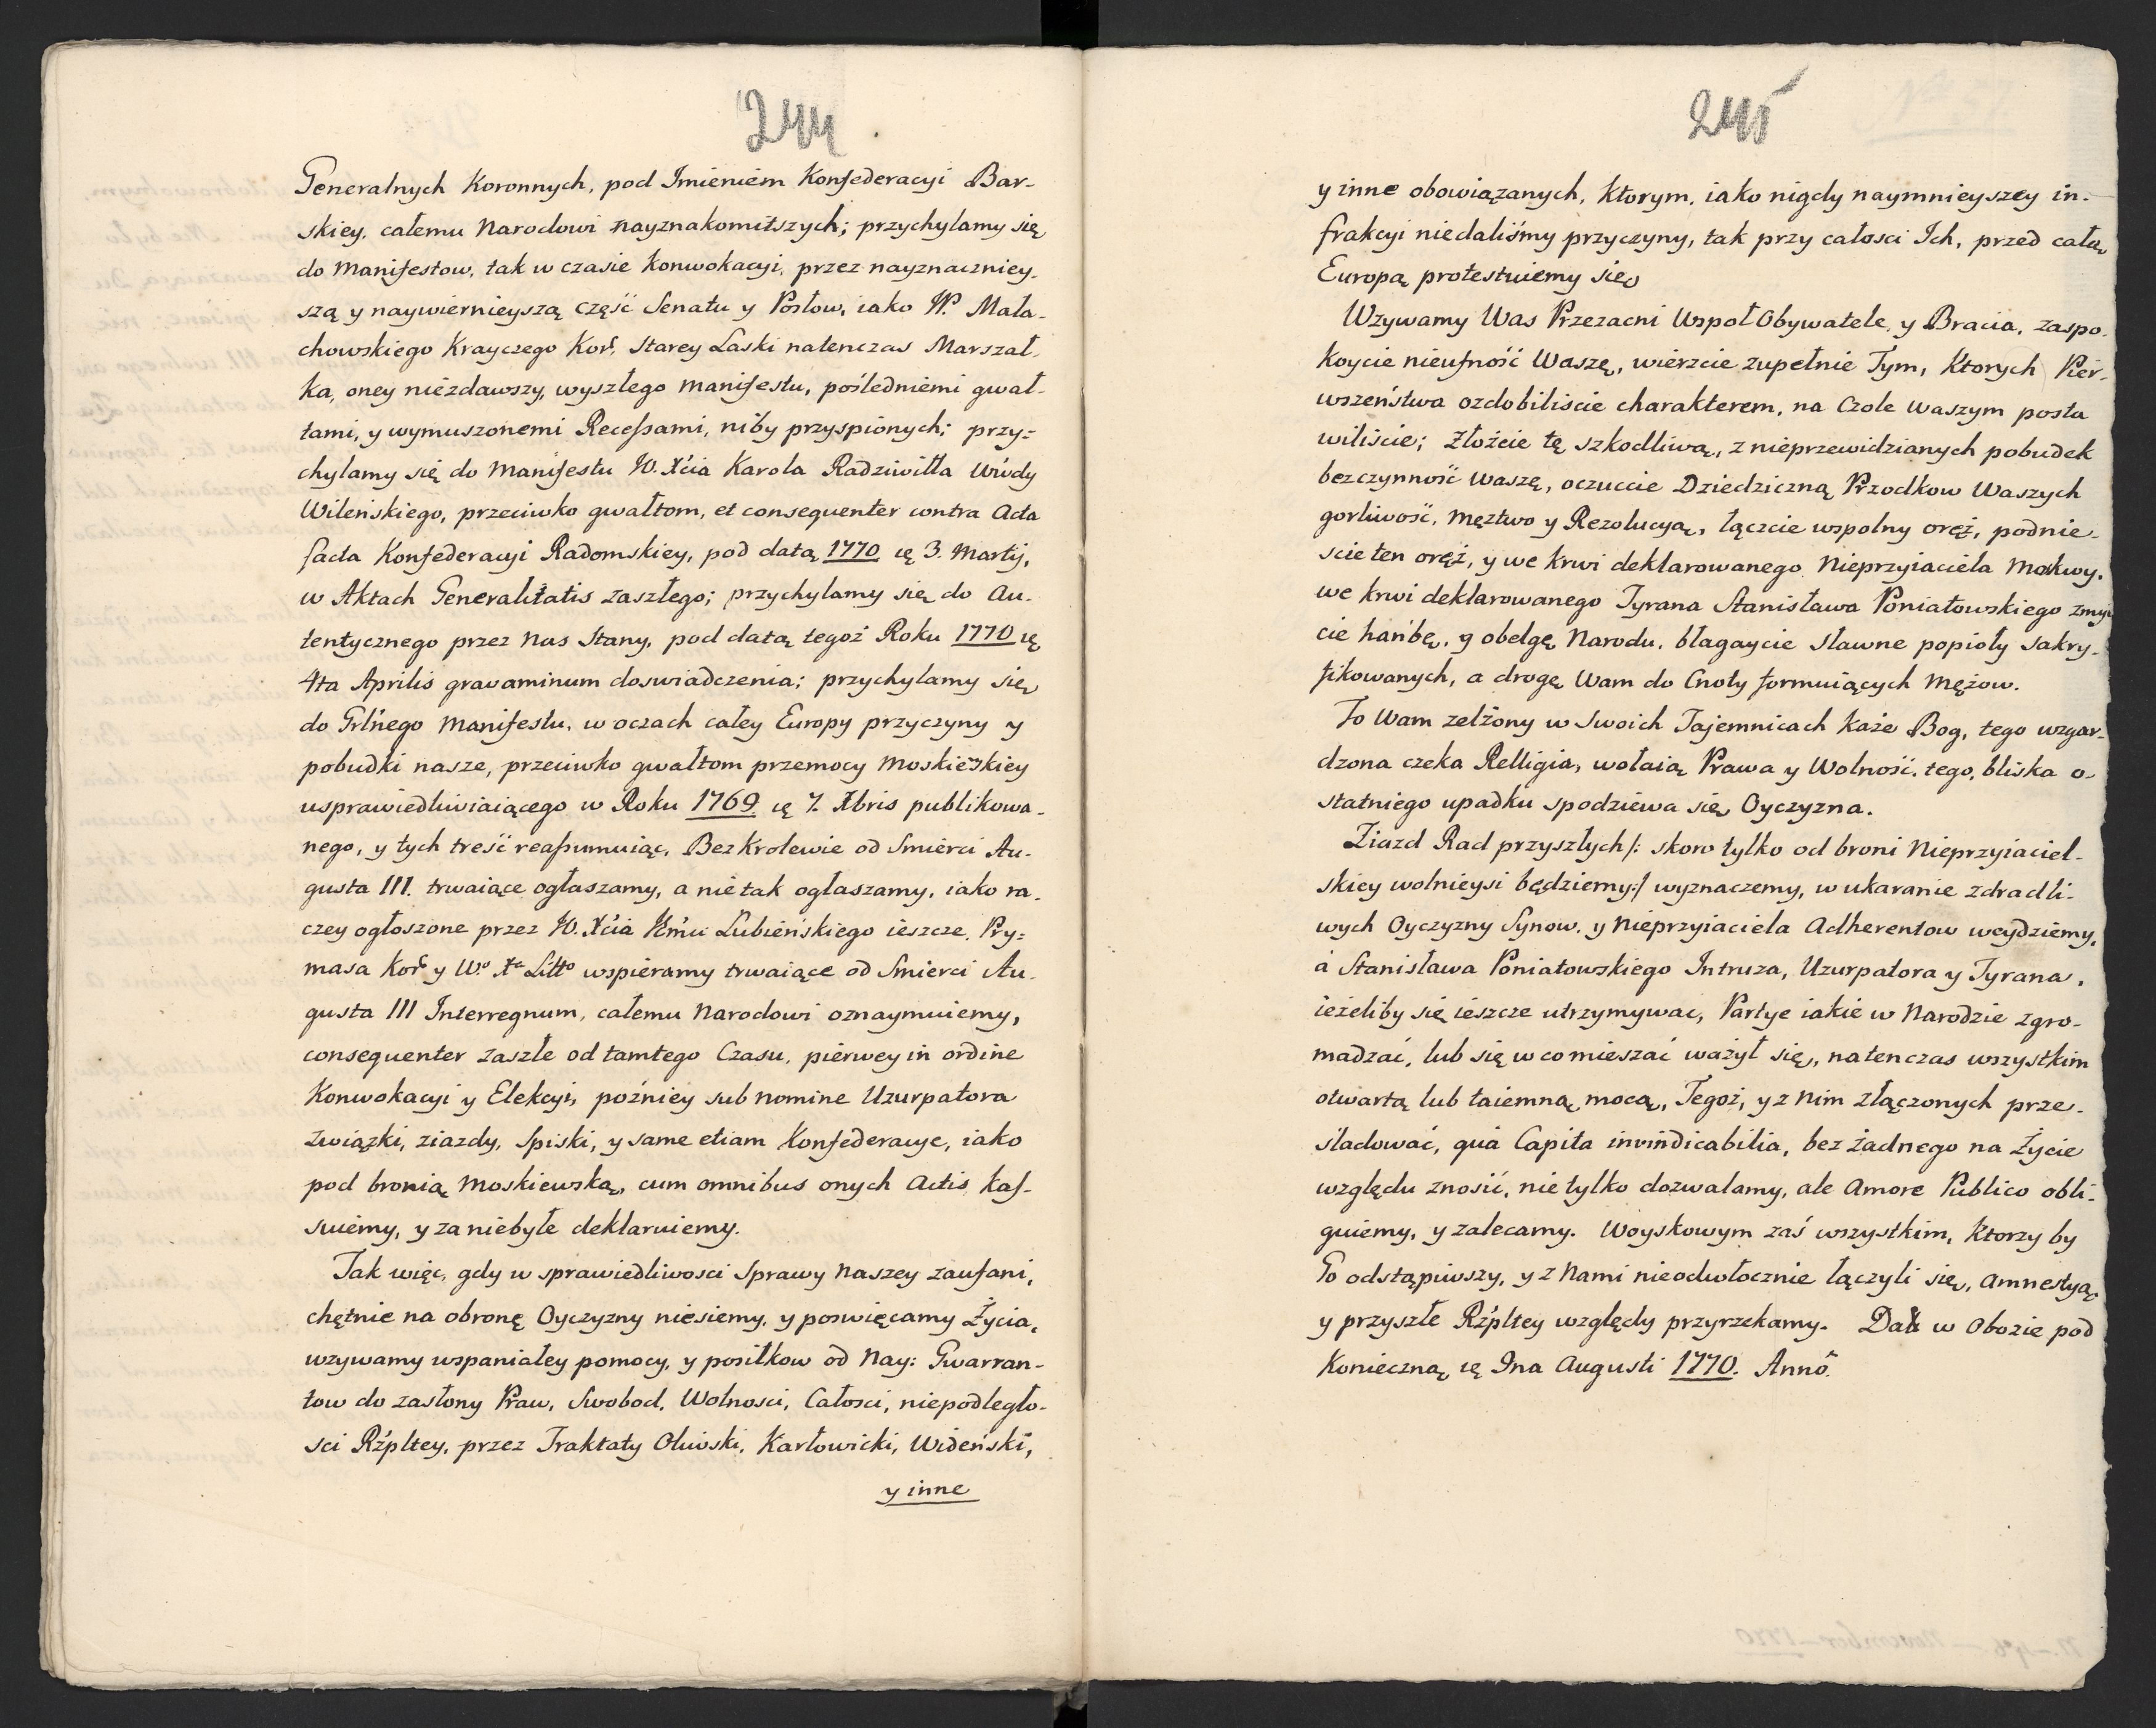 244
Generalnych Koronnych, pod Imieniem Konfederacyi Bar-
skiey, całemu Narodowi nayznakomitszych; przychylamy się
do Manifestow, tak w czasie Konwokacyi, przez nayznaczniey-
szą y naywiernieyszą część Senatu y Posłow, iako W. Mała-
chowskiego Krayczego Kor. Starey Laski natenczas Marszał-
ka, oney niezdawszy, wyszłego Manifestu, pośledniemi gwał-
tami, y wymuszonemi Recessami, niby przyspionych; przy=
chylamy się do Manifestu W. Xcia Karola Radziwiłła Wwdy
Wileńskiego, przeciwko gwałtom, et consequenter contra Acta
facta Konfederacyi Radomskiey, pod datą 1770 ię 3. Martij,
w Aktach Generalitatis zaszłego; przychylamy się do Au-
tentycznego przez Nas Stany, pod datą tegoż Roku 1770 ię
4ta Aprilis gravaminum doswiadczenia; przychylamy się
do Grlnego Manifestu, w oczach całey Europy przyczyny y
pobudki nasze, przeciwko gwałtom przemocy Moskieskiey
usprawiedliwiaiącego w Roku 1769 ię 7. Xbris publikowa-
nego, y tych treść reassumuiąc, Bez Krolewie od Smierci Au-
gusta III. trwaiące ogłaszamy, a nie tak ogłaszamy, iako ra-
czey ogłoszone przez W. Xcia Jmu Lubieńskiego ieszcze Pry=
masa Kor. y W.o X.a Litto wspieramy trwaiące od Smierci Au-
gusta III Interregnum, całemu Narodowi oznaymuiemy,
consequenter zaszłe od tamtego Czasu, pierwey in ordine
Konwokacyi y Elekcyi, poźniey sub nomine Uzurpatora
związki, ziazdy, Spiski, y same etiam Konfederacye, iako
pod bronią Moskiewską, cum omnibus onych Actis kas-
suiemy, y za niebyłe deklaruiemy.
Tak więc, gdy w sprawiedliwosci Sprawy Naszey zaufani,
chętnie na obronę Oyczyzny niesiemy, y poswięcamy Życia,
wzywamy wspaniałey pomocy, y posiłkow od Nay: Gwarran-
tow do zasłony Praw, Swobod, Wolnosci, Całosci, niepodległo-
sci Rzpltey, przez Traktaty Oliwski, Karłowicki, Wideński,
y inne
245
y inne obowiązanych, Ktorym, iako nigdy naymnieyszey in-
frakcyi niedaliśmy przyczyny, tak przy całosci Ich, przed całą
Europą protestuiemy się.
Wzywamy Was Przezacni Uspoł Obywatele, y Bracia, zaspo-
koycie nieufność Waszę, wierzcie zupełnie Tym, Ktorych Pier-
wszeństwa ozdobiliscie charakterem, na Czole Waszym posta
wiliście; złożcie tę szkodliwą, z nieprzewidzianych pobudek
bezczynność Waszę, oczuccie Dziedziczną Przodkow Waszych
gorliwość, męztwo y Rezolucyą, łączcie wspolny oręż, podnie-
scie ten oręż, y we krwi deklarowanego Nieprzyiaciela Moskwy,
we krwi deklarowanego Tyrana Stanisława Poniatowskiego zmyi
cie hańbę, y obelgę Narodu, błagaycie sławne popioły sakry-
fikowanych, a drogę Wam do Cnoty formuiących Mężow.
To Wam zelżony w Swoich Tajemnicach Każe Bog, tego wzgar-
dzona czeka Relligia, wołaią Prawa y Wolność, tego, bliska o-
statniego upadku spodziewa się Oyczyzna.
Ziazd Rad przyszłych /: skoro tylko od broni Nieprzyiaciel-
skiey wolnieysi będziemy :/ wyznaczemy, w ukaranie zdradli-
wych Oyczyzny Synow, y Nieprzyiaciela Adherentow weydziemy,
a Stanisława Poniatowskiego Intruza, Uzurpatora y Tyrana,
ieżeliby się ieszcze utrzymywac, Partye iakie w Narodzie zgro-
madzać, lub się w co mieszać ważył się, natenczas wszystkim
otwartą lub taiemną mocą, Tegoż, y z nim złączonych prze-
śladować, quà Capita invindicabilia, bez żadnego na Życie
względu znosić, nie tylko dozwalamy, ale Amore Publico obli-
guiemy, y zalecamy. Woyskowym zaś wszystkim, Ktorzy by
Go odstąpiwszy, y z Nami nieodwłocznie łączyli się, Amnestyą
y przyszłe Rzpltey względy przyrzekamy. Dat w Obozie pod
Konieczną ię 9na Augusti 1770. Anno.